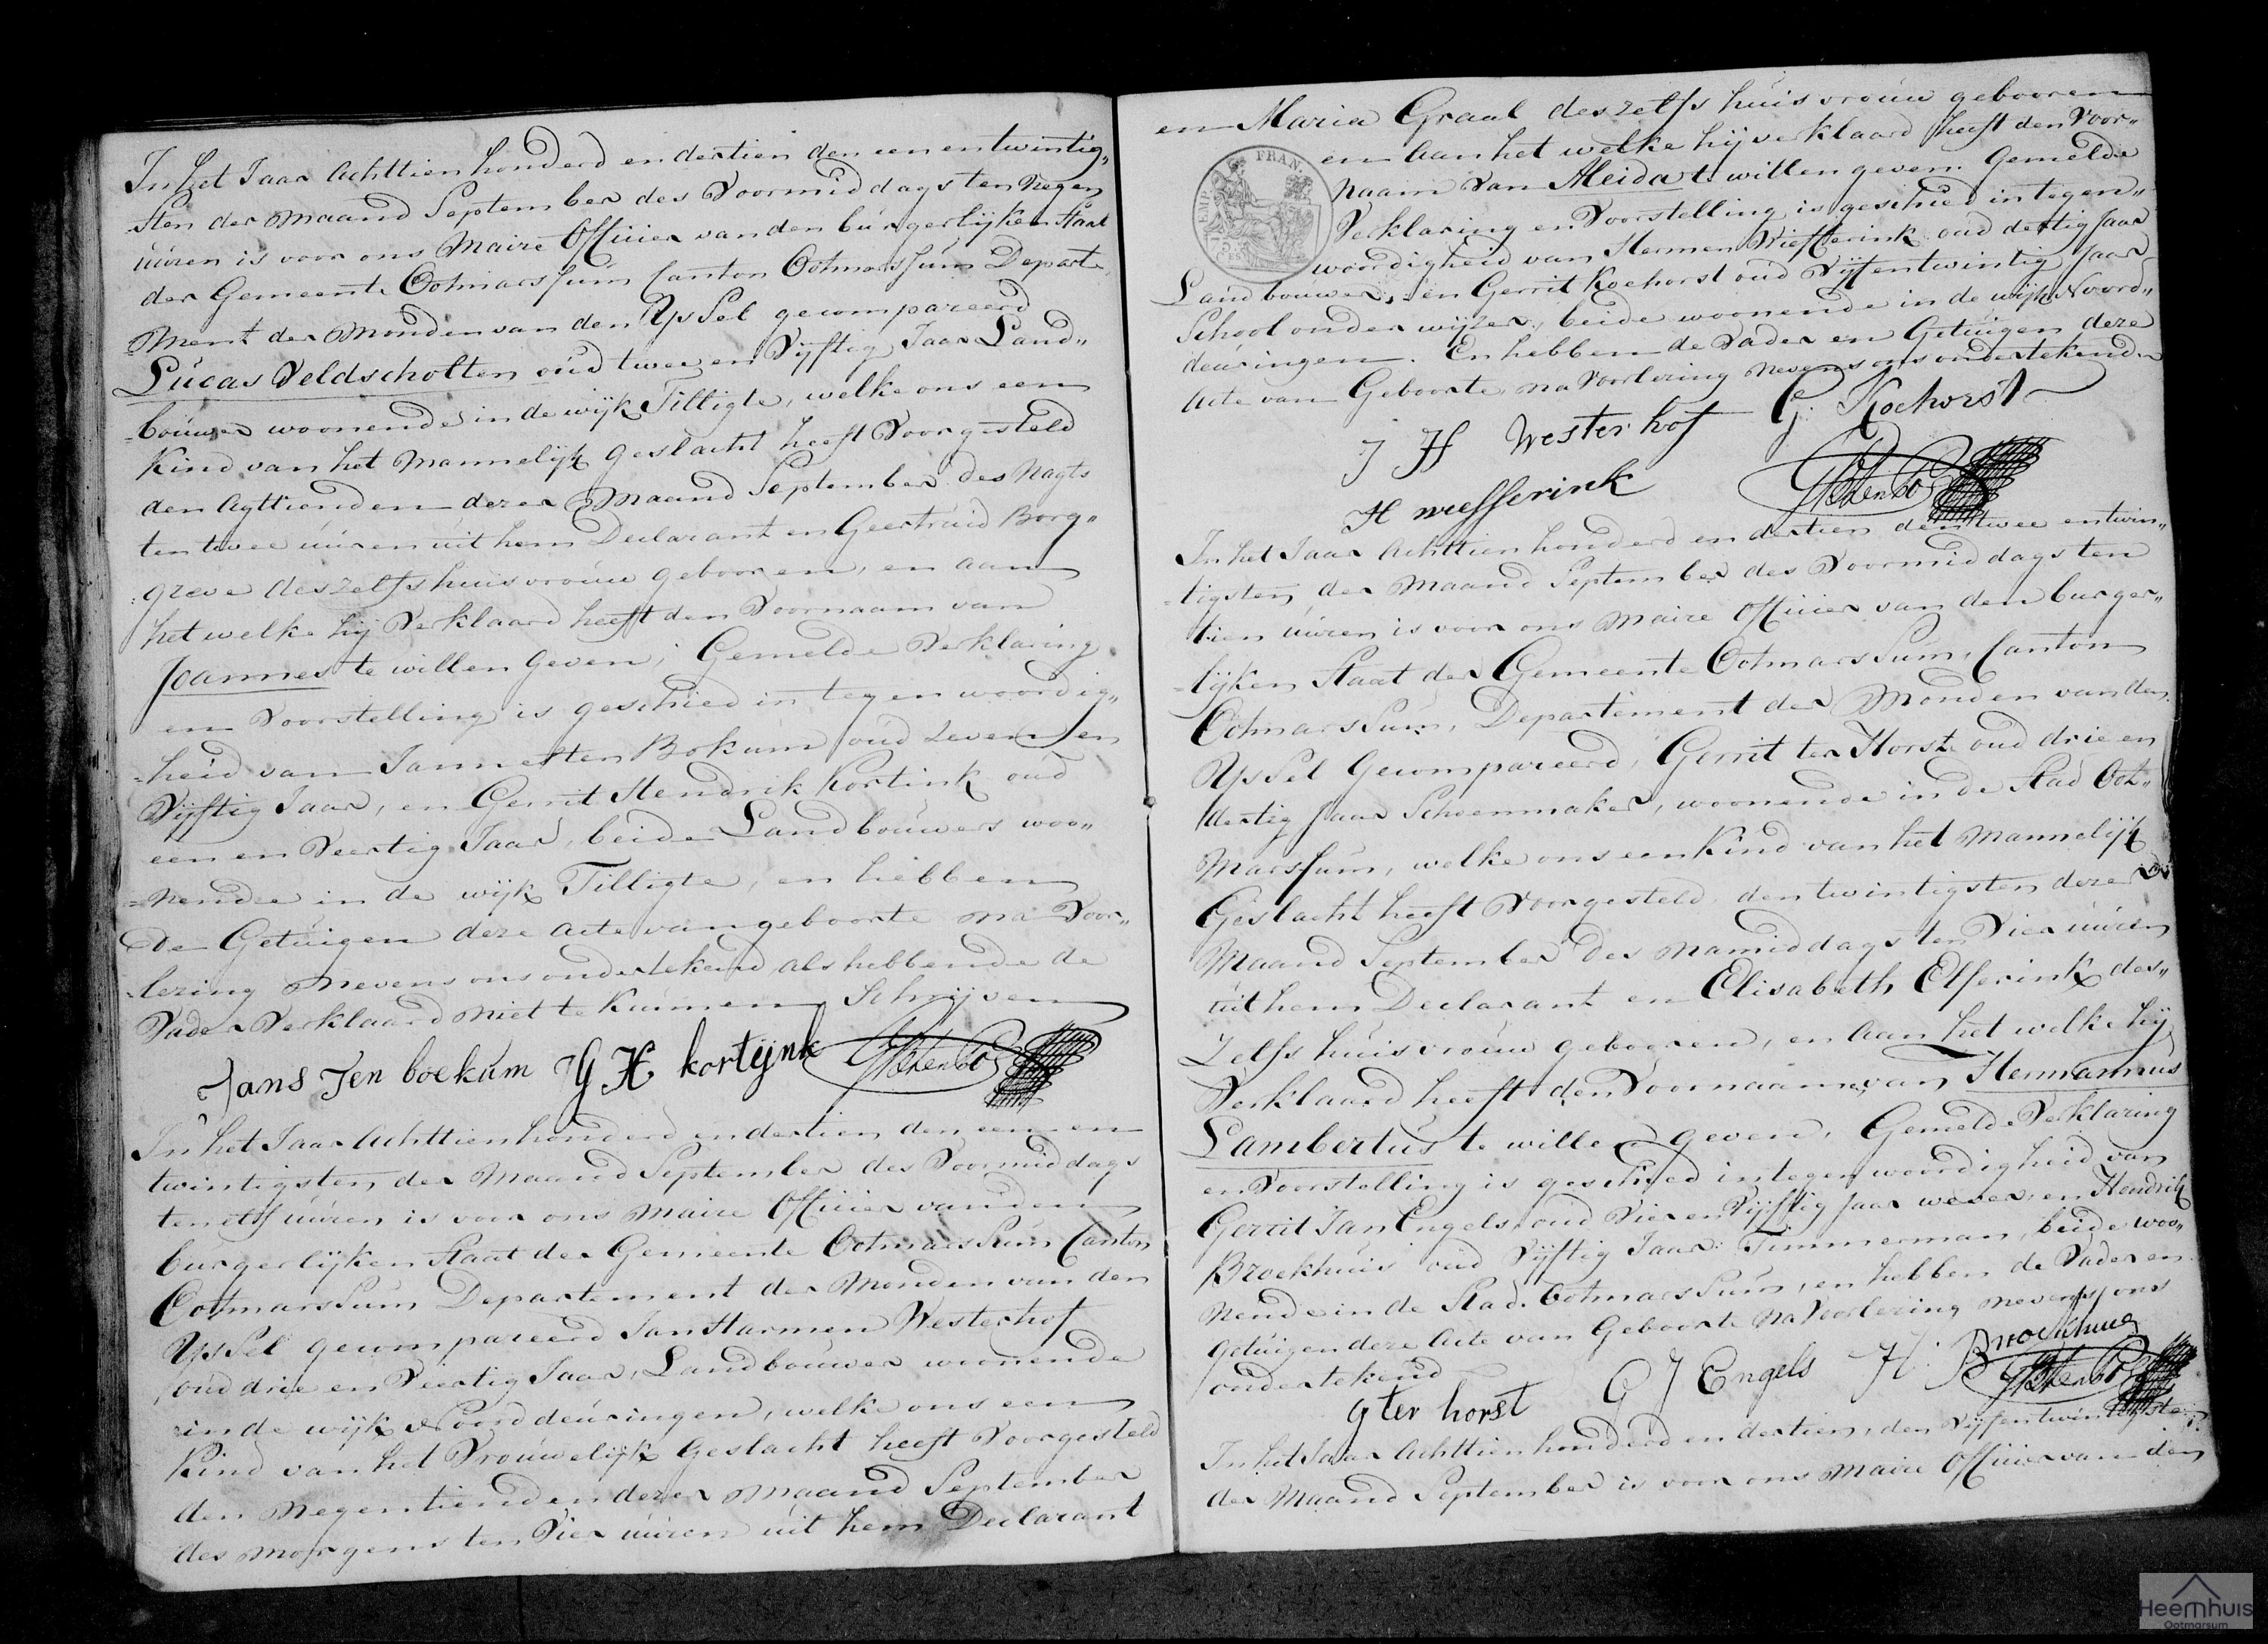 In het Jaar Achttien honderd en dertien den een en twintig„
sten der Maand September des Voormiddags ten Negen
uuren is voor ons Maire Officier van den burgerlijken Staat
der Gemeente Ootmarssum Canton Ootmarssum Departe„
ment der Monden van den Yssel gecompareerd
Lucas Veldscholten oud twee en Vijftig Jaar Land„
bouwer woonende in de wijk Tilligte, welke ons een
Kind van het Mannelijk Geslacht heeft Voorgesteld
den Agttienden dezer Maand September des Nagts
ten twee uuren uit hem Declarant en Geertruid Borg„
greve deszelfs huisvrouw gebooren, en aan
het welke hij Verklaard heeft den Voornaam van
Joannes te willen Geven; Gemelde Verklaring
en Voorstelling is geschied in tegenwoordig„
heid van Jannes ten Bokum oud Zeven en
Vijftig Jaar, en Gerrit Hendrik Kortink oud
een en Veertig Jaar, beide Landbouwers woo„
nende in de wijk Tilligte, en hebben
de Getuigen deze Acte van geboorte na Voor„
lezing nevens ons ondertekend als hebbende de
Vader Verklaard niet te Kunnen Schrijven
Jans Ten boekum G H kortijnk
In het Jaar Achttien honderd en dertien den een en
twintigsten der Maand September des Voormiddags
ten elf uuren is voor ons Maire Officier van den
burgerlijken Staat der Gemeente Ootmarssum Canton
Ootmarssum Departement der Monden van den
Yssel gecompareerd Jan Harmen Westerhof
oud drie en Veertig Jaar, Landbouwer woonende
in de wijk Noorddeuringen, welke ons een
Kind van het Vrouwelijk Geslacht heeft Voorgesteld
den Negentienden dezer Maand September
des morgens ten Vier uuren uit hem Declarant
en Maria Graal deszelfs huisvrouw gebooren
en Aan het welke hij verklaard heeft den Voor„
naam van Aleida te willen geven. Gemelde
Verklaring en Voorstelling is geschied in tegen„
woordigheid van Hermen Wiefferink oud dertig Jaar
Landbouwer, en Gerrit Koehorst oud Vijf en twintig Jaar
School onderwijzer, beide woonende in de wijk Noord„
deuringen. En hebben de Vader en Getuigen deze
Acte van Geboorte na Voorlezing nevens ons ondertekend
EMP. FRAN.
75 CES
J H Westerhof G. Koehorst
H wiefferink
In het Jaar Achttien honderd en dertien den twee en twin„
tigsten der Maand September des Voormiddags ten
tien uuren is voor ons Maire Officier van den burger„
lijken Staat der Gemeente Ootmarssum, Canton
Ootmarssum, Departement der Monden van den
Yssel Gecompareerd, Gerrit ter Horst oud drie en
dertig Jaar Schoenmaker, woonende in de Stad Oot„
marssum, welke ons een Kind van het Mannelijk
Geslacht heeft Voorgesteld, den twintigsten dezer
Maand September des namiddags ten Vier uuren
uit hem Declarant en Elisabeth Elferink des„
zelfs huisvrouw gebooren, en Aan het welke hij
Verklaard heeft den Voornaam van Hermannus
Lambertus te willen geven, Gemelde Verklaring
en Voorstelling is geschied in tegenwoordigheid van
Gerrit Jan Engels oud Vier en Vijftig Jaar wever, en Hendrik
Broekhuis oud Vijftig Jaar Timmerman, beide woo„
nende in de Stad Ootmarssum, en hebben de Vader en
Getuigen deze Acte van Geboorte na Voorlezing nevens ons
ondertekend
G ter horst G J Engels H. Broekhuis
In het Jaar Achttien honderd en dertien, den Vijf en twintigsten
der Maand September is voor ons Maire Officier van den
Heemhuis
Ootmarsum